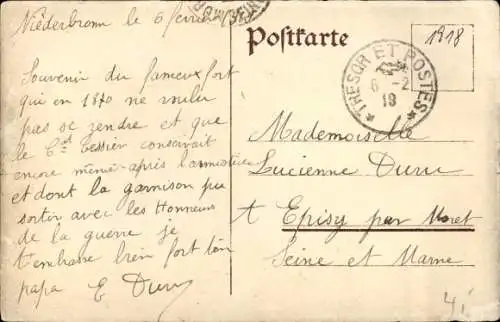 Niederbronn le 6 février
Postkarte
1918
TRESOR ET POSTES
6 -2
19
Souvenir du fameux fort
qui en 1870 ne voulu
pas se rendre et que
le Cel Tessier conservait
encore même après l'armistice
et dont la garnison pu
sortir avec les Honneurs
de la guerre je
t'embrasse bien fort ton
papa E Duru
Mademoiselle
Lucienne Duru
A Episy par Moret
Seine et Marne